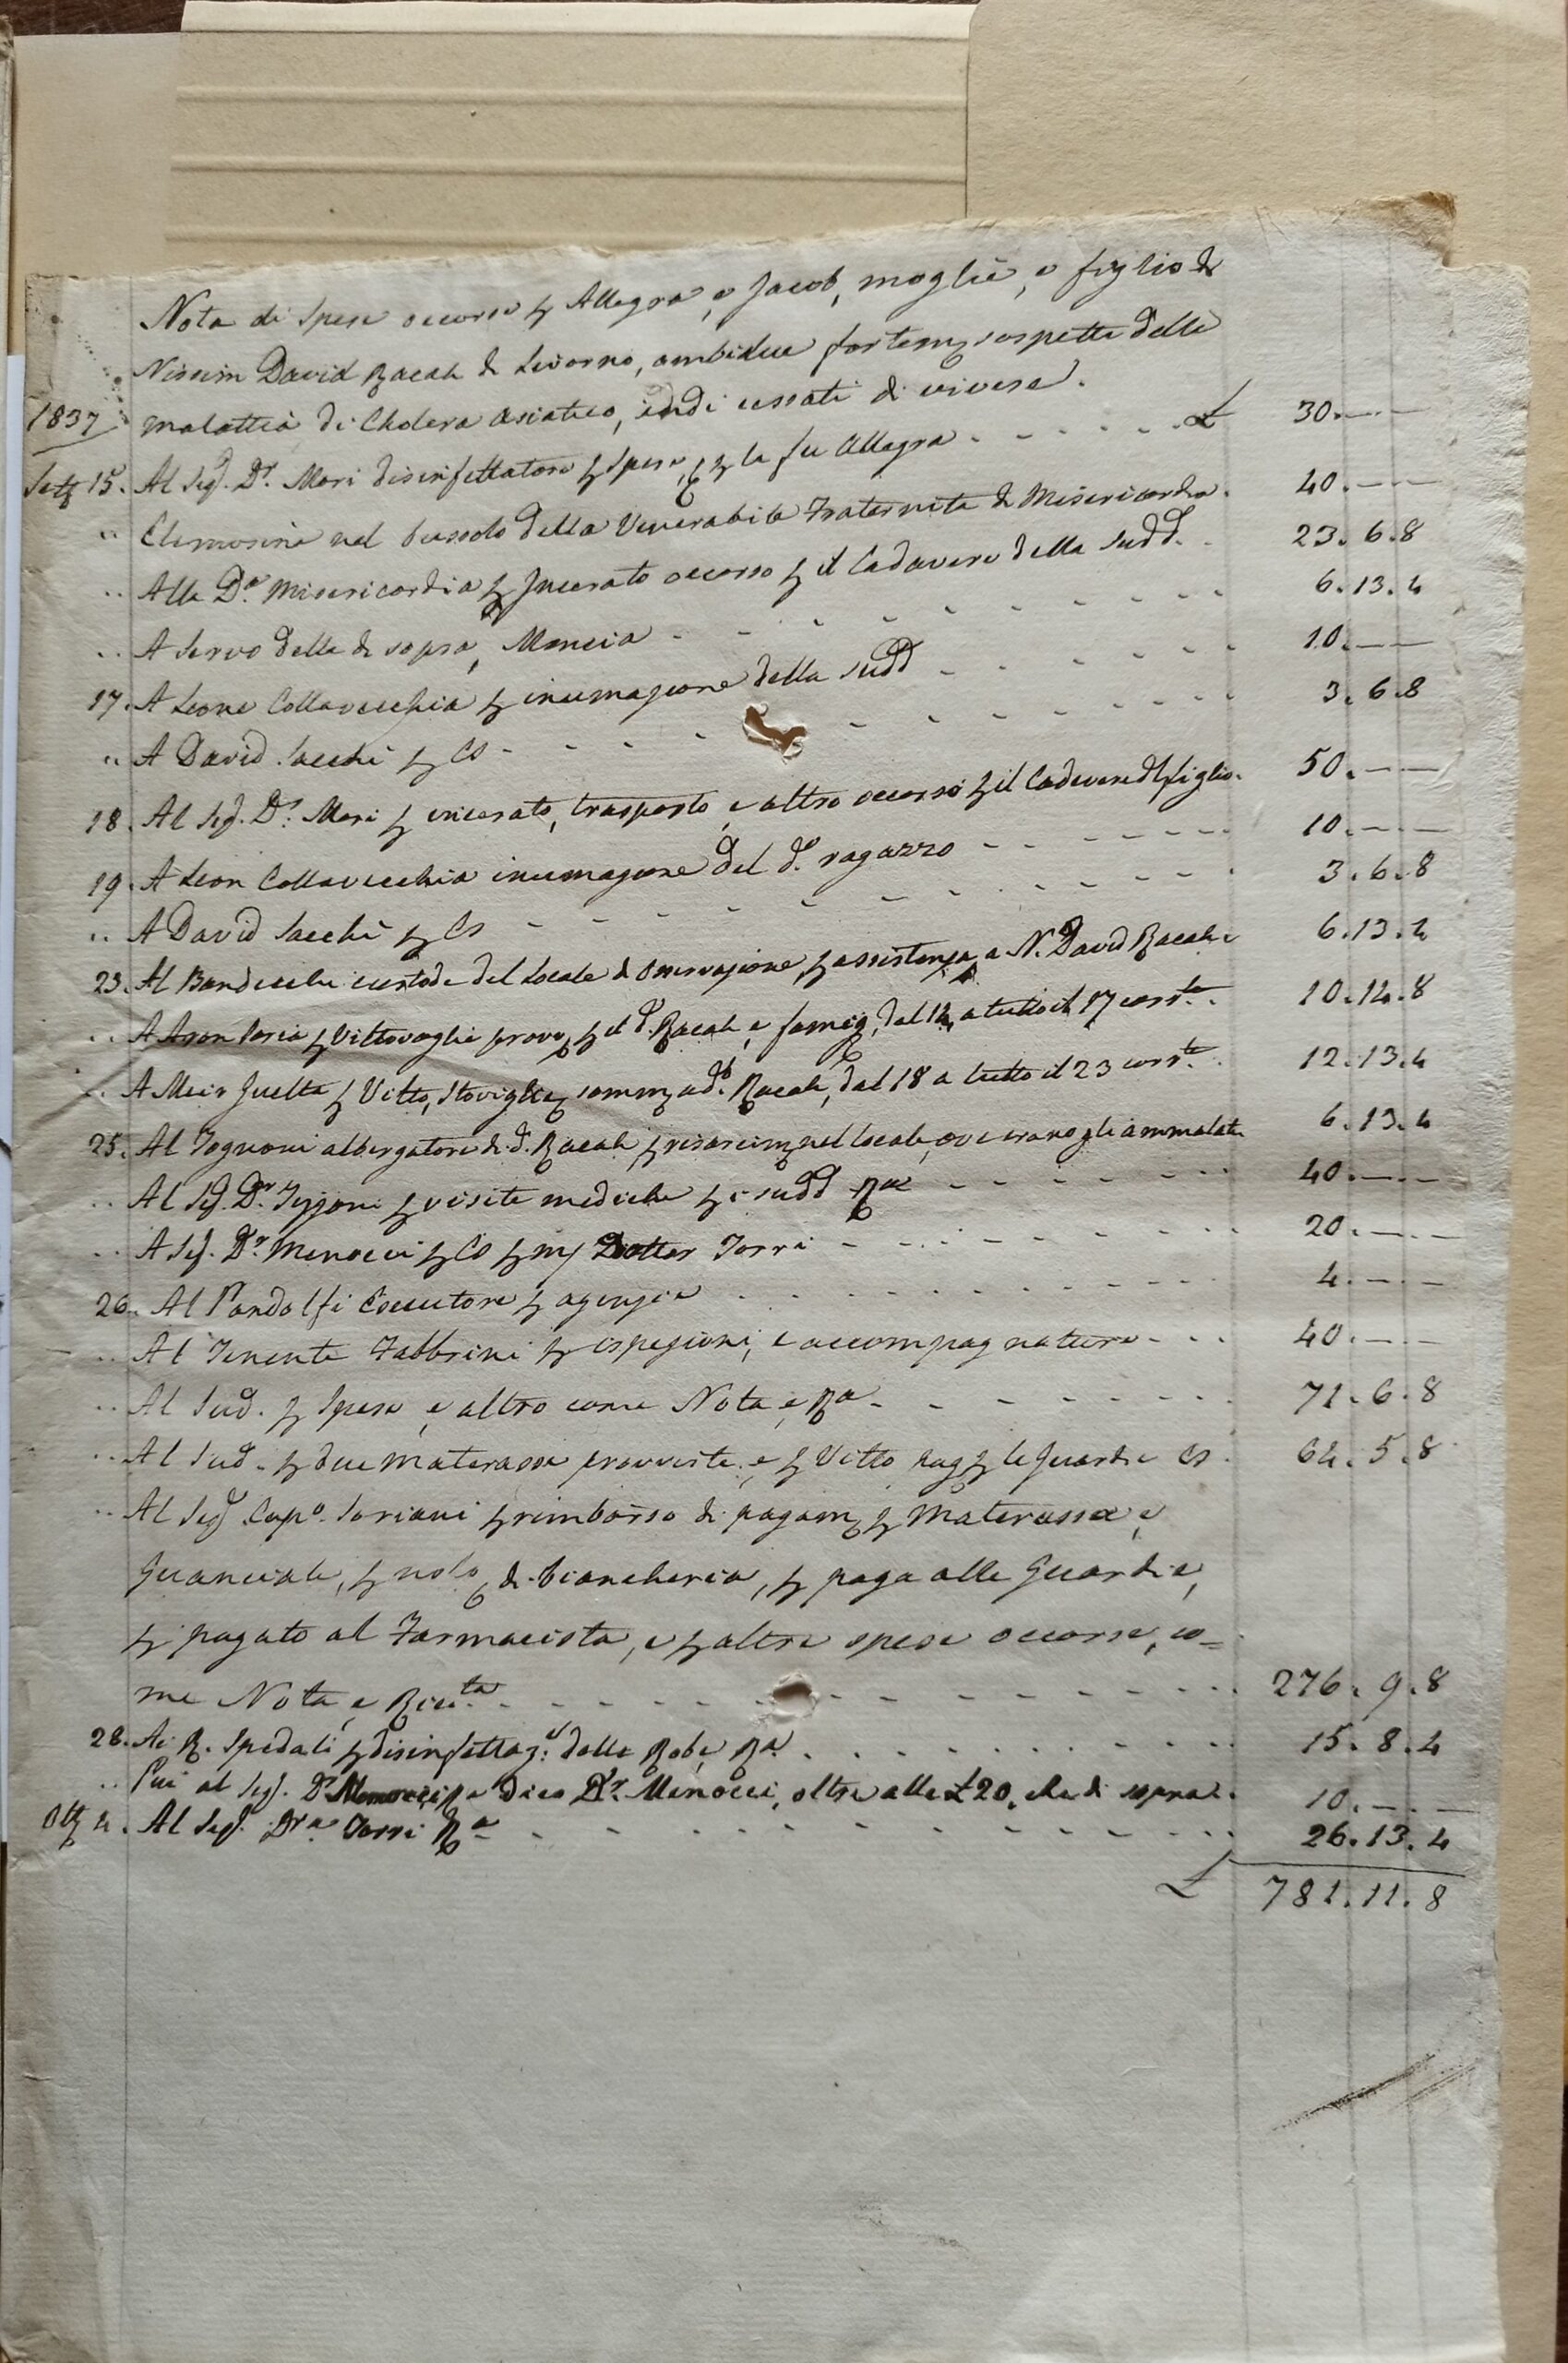 Nota di Spese occorse p Allegra, e Jacob, moglie, e figlio di
Nissim David Racah di Livorno, ambidue fortem sospetti della
1837 malattia di Cholera asiatico, indi cessati di vivere.
Sett 15. Al Sig. Dr. Mori disinfettatore p Spese, p la fu Allegra - - - - - - £ 30.—.—
" Elemosina nel bussolo della Venerabile Fraternita di Misericordia. 40.—.—
" Alla Da. Misericordia p Incerato occorso p il Cadavere della Sudd. 23.6.8
" A Servo della di sopra, Mancia - - - - - - - - 6.13.4
17. A Leone Collavecchia p inumazione della Sudd - - - - - 10.—.—
" A David Sacchi p Cs - - - - - - - - - 3.6.8
18. Al Sig. Dr. Mori p incerato, trasporto, e altro occorso p il Cadavere dl figlio. 50.—.—
19. A Leon Collavecchia inumazione del do. ragazzo - - - - - 10.—.—
" A David Sacchi p Cs - - - - - - - - - 3.6.8
23. Al Bandecchi custode del Locale d'Osservazione, p assistenza, a N. David Racah 6.13.4
" A Aron Soria p Vittovaglie provo, p il do. Racah, e famig, dal 14, a tutto il 17 corrte. 10.14.8
" A Meir Juelta p Vitto, Stoviglie somm ado. Racah, dal 18 a tutto il 23 corrte. 12.13.4
25. Al Tognoni albergatore di d. Racah, p risarcim nel locale, ov'erano gli ammalati 6.13.4
" Al Sig. Dr. Tizzoni p visite mediche p i sudd Ra - - - - - 40.—.—
" A Sig. Dr. Menocci p Cs p m/ Dottor Torri - - - - - - - 20.—.—
26. Al Pandolfi Esecutore p agenzia - - - - - - - - 4.—.—
" Al Tenente Fabbrini p ispezioni, e accompagnature - - - 40.—.—
" Al Sud. p Spese e altro come Nota, e Ra - - - - - - 71.6.8
" Al Sud. p due Materasse provviste, e p Vitto pag p le Guardie Cs. 64.5.8
" Al Sig. Capo. Soriani p rimborso di pagam p Materasse, e
Guanciale, p nolo di biancheria, p paga alle Guardie,
p pagato al Farmacista, e p altre spese occorse, co=
me Nota, e Ricta. - - - - - - - - - - - 276.9.8
28. Ai R. Spedali p disinfettaz: delle Robe, Ra. - - - - - - 15.8.4
" Piu al Sig. Dr. Menocci, dico Dr. Menocci, oltre alle £ 20, che di sopra. 10.—.—
Ott 4. Al Sig. Dre. Torri Ra - - - - - - - - - - 26.13.4
£ 781.11.8